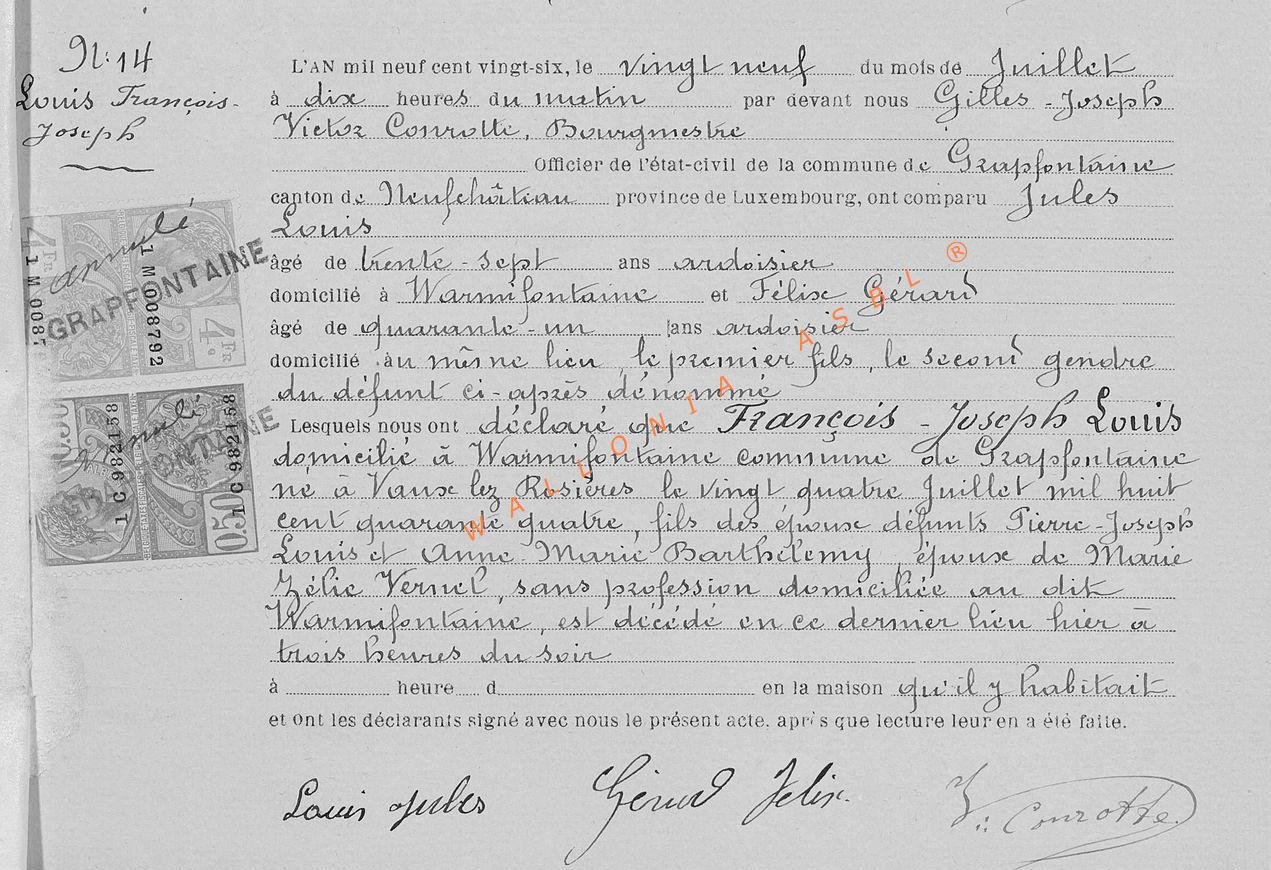 N: 14
Louis François-
Joseph
L'AN mil neuf cent vingt-six, le vingt neuf du mois de Juillet
à dix heures du matin par devant nous Gilles-Joseph
Victor Conrotte, Bourgmestre
Officier de l'état-civil de la commune de Grapfontaine
canton de Neufchâteau province de Luxembourg, ont comparu Jules
Louis
âgé de trente-sept ans ardoisier
domicilié à Warmifontaine et Félix Gérard
âgé de quarante-un ans ardoisier
domicilié au même lieu, le premier fils, le second gendre
du défunt ci-après dénommé
Lesquels nous ont déclaré que François-Joseph Louis
domicilié à Warmifontaine commune de Grapfontaine
né à Vaux lez Rosières le vingt quatre Juillet mil huit
cent quarante quatre, fils des époux défunts Pierre-Joseph
Louis et Anne-Marie Barthélemy, époux de Marie
Zélie Vernel, sans profession domiciliée au dit
Warmifontaine, est décédé en ce dernier lieu hier à
trois heures du soir
à heure d en la maison qu'il y habitait
et ont les déclarants signé avec nous le présent acte, après que lecture leur en a été faite.
Louis Jules Gérard Félix V: Conrotte
annulé
GRAPFONTAINE
4 FR
1 M 0087
1 M 008792
4 FR
annulé
NTAINE
1 C 982158
1 C 982158
0.50
WALLONIA ASBL ®